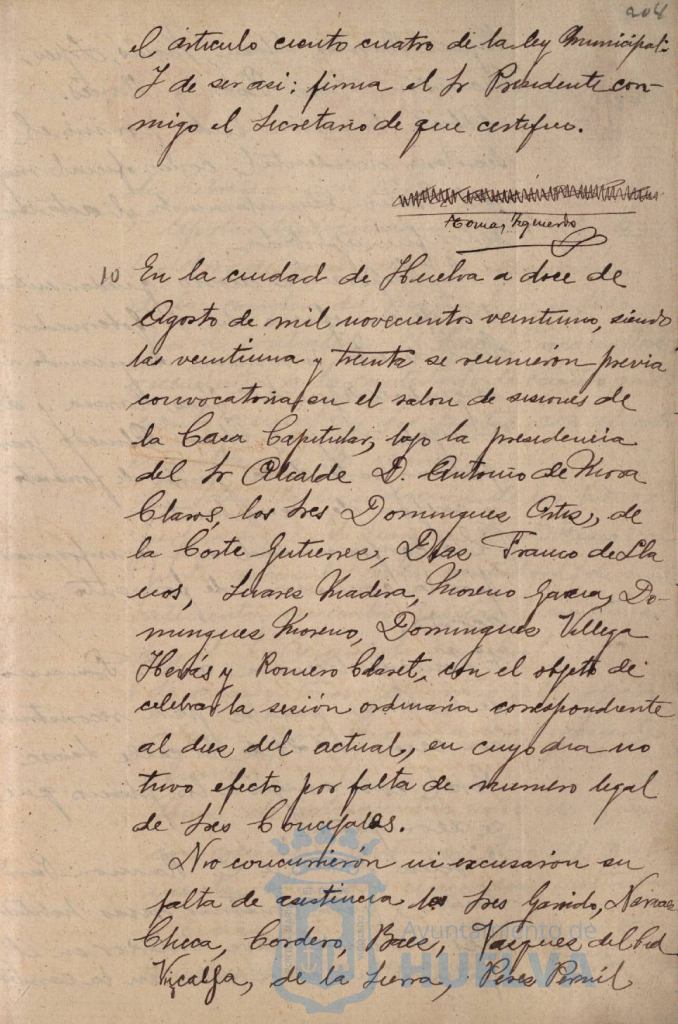 204
el articulo ciento cuatro de la ley Municipal.
Y de ser asi; firma el Sr Presidente con-
migo el Secretario de que certifico.
Tomas Izquierdo
10 En la ciudad de Huelva a doce de
Agosto de mil novecientos veintiuno, siendo
las veintiuna y treinta se reunieron previa
convocatoria en el salon de sesiones de
la Casa Capitular, bajo la presidencia
del Sr Alcalde D. Antonio de Mora
Claros, los Sres Dominguez Ortiz, de
la Corte Gutierrez, Dias Franco de Lla
nos, Suares Madera, Moreno Garcia, Do-
mingues Moreno, Domingues Villega
Hervás y Romero Claret, con el objeto de
celebrar la sesión ordinaria correspondiente
al dies del actual, en cuyo dia no
tuvo efecto por falta de numero legal
de Sres Concejales.
No concurrierón ni excusarón su
falta de asistencia los Sres Garrido,
Checa, Cordero, Baes, Vasques del Cid
Vizcalfa, de la Sierra, Peres Pernil
Ayuntamiento de
HUELVA